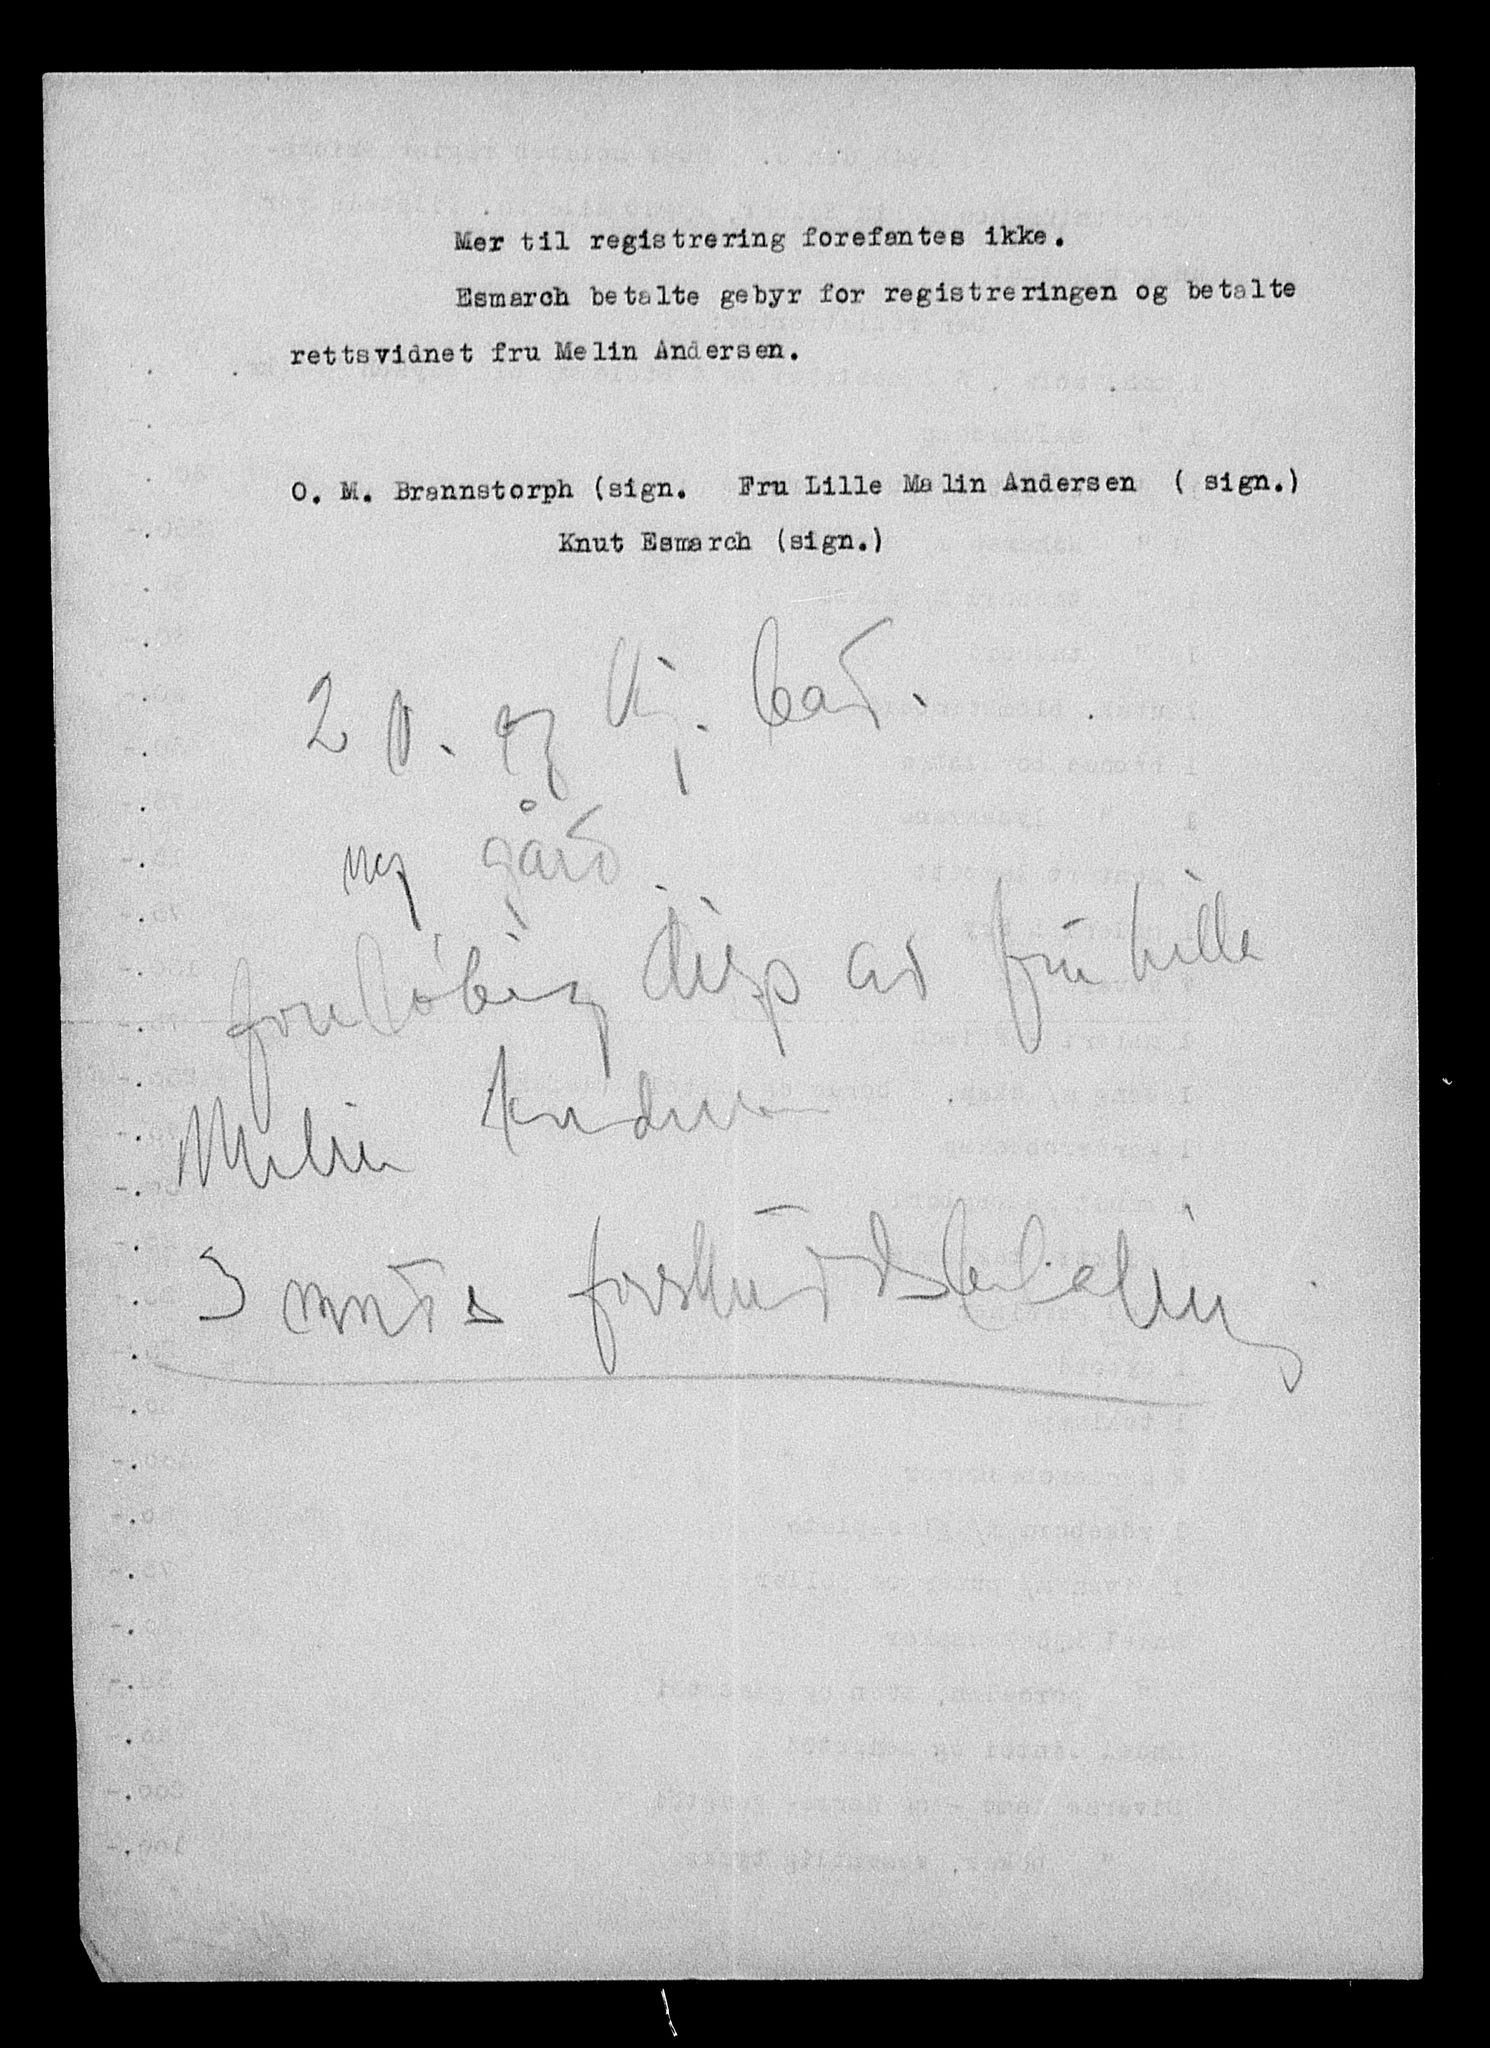 Mer til registrering forefantes ikke.
Esmarch betalte gebyr for registreringen og betalte
rettsvidnet fru Melin Andersen.
O. M. Brannstorph (sign.   Fru Lille Malin Andersen  ( sign.)
Knut Esmarch (sign.)
2 v. og kj. bad.
ny gård
foreløbig disp av fru Lille
Melin Andersen
3 mnds forskuddsbetaling